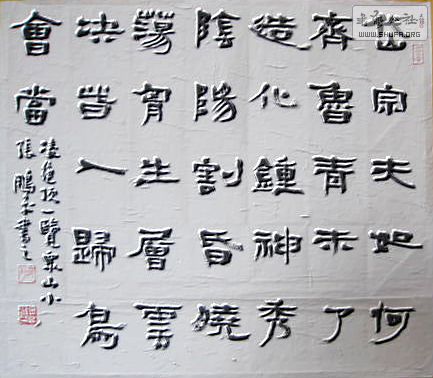 岱宗夫如何
齊魯青未了
造化鍾神秀
陰陽割昏曉
蕩胷生層雲
決眥入歸鳥
會當
凌絶頂一覽衆山小
張鵬書之
WWW.SHUFA.ORG